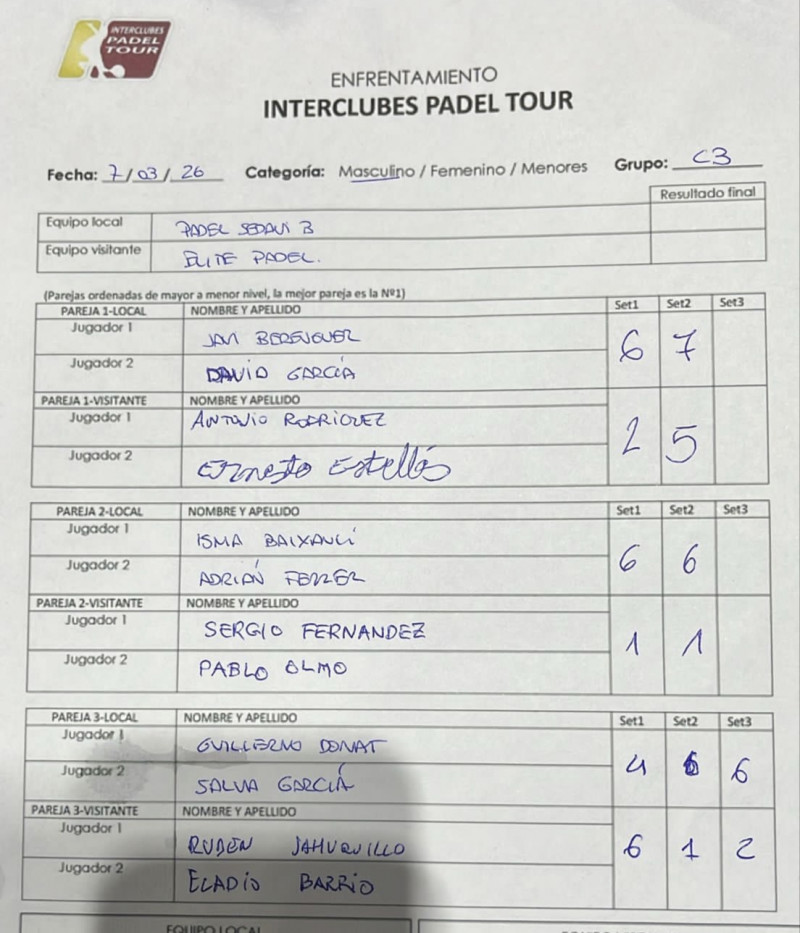 INTERCLUBES
PADEL
TOUR
ENFRENTAMIENTO
INTERCLUBES PADEL TOUR
Fecha: 7/03/26 Categoría: Masculino / Femenino / Menores Grupo: C3
Resultado final
Equipo local PADEL SEDAVI B
Equipo visitante ELITE PADEL.
(Parejas ordenadas de mayor a menor nivel, la mejor pareja es la Nº1)
PAREJA 1-LOCAL NOMBRE Y APELLIDO Set1 Set2 Set3
Jugador 1 JAVI BERENGUER
6 7
Jugador 2 DAVID GARCÍA
PAREJA 1-VISITANTE NOMBRE Y APELLIDO
Jugador 1 ANTONIO RODRIGUEZ
2 5
Jugador 2 Ernesto Estellés
PAREJA 2-LOCAL NOMBRE Y APELLIDO Set1 Set2 Set3
Jugador 1 ISMA BAIXAULÍ
6 6
Jugador 2 ADRIÁN FERRER
PAREJA 2-VISITANTE NOMBRE Y APELLIDO
Jugador 1 SERGIO FERNANDEZ
1 1
Jugador 2 PABLO OLMO
PAREJA 3-LOCAL NOMBRE Y APELLIDO Set1 Set2 Set3
Jugador 1 GUILLERMO DONAT
4 6 6
Jugador 2 SALVA GARCÍA
PAREJA 3-VISITANTE NOMBRE Y APELLIDO
Jugador 1 RUBEN JAHUQUILLO
6 1 2
Jugador 2 ELADIO BARRIO
EQUIPO LOCAL